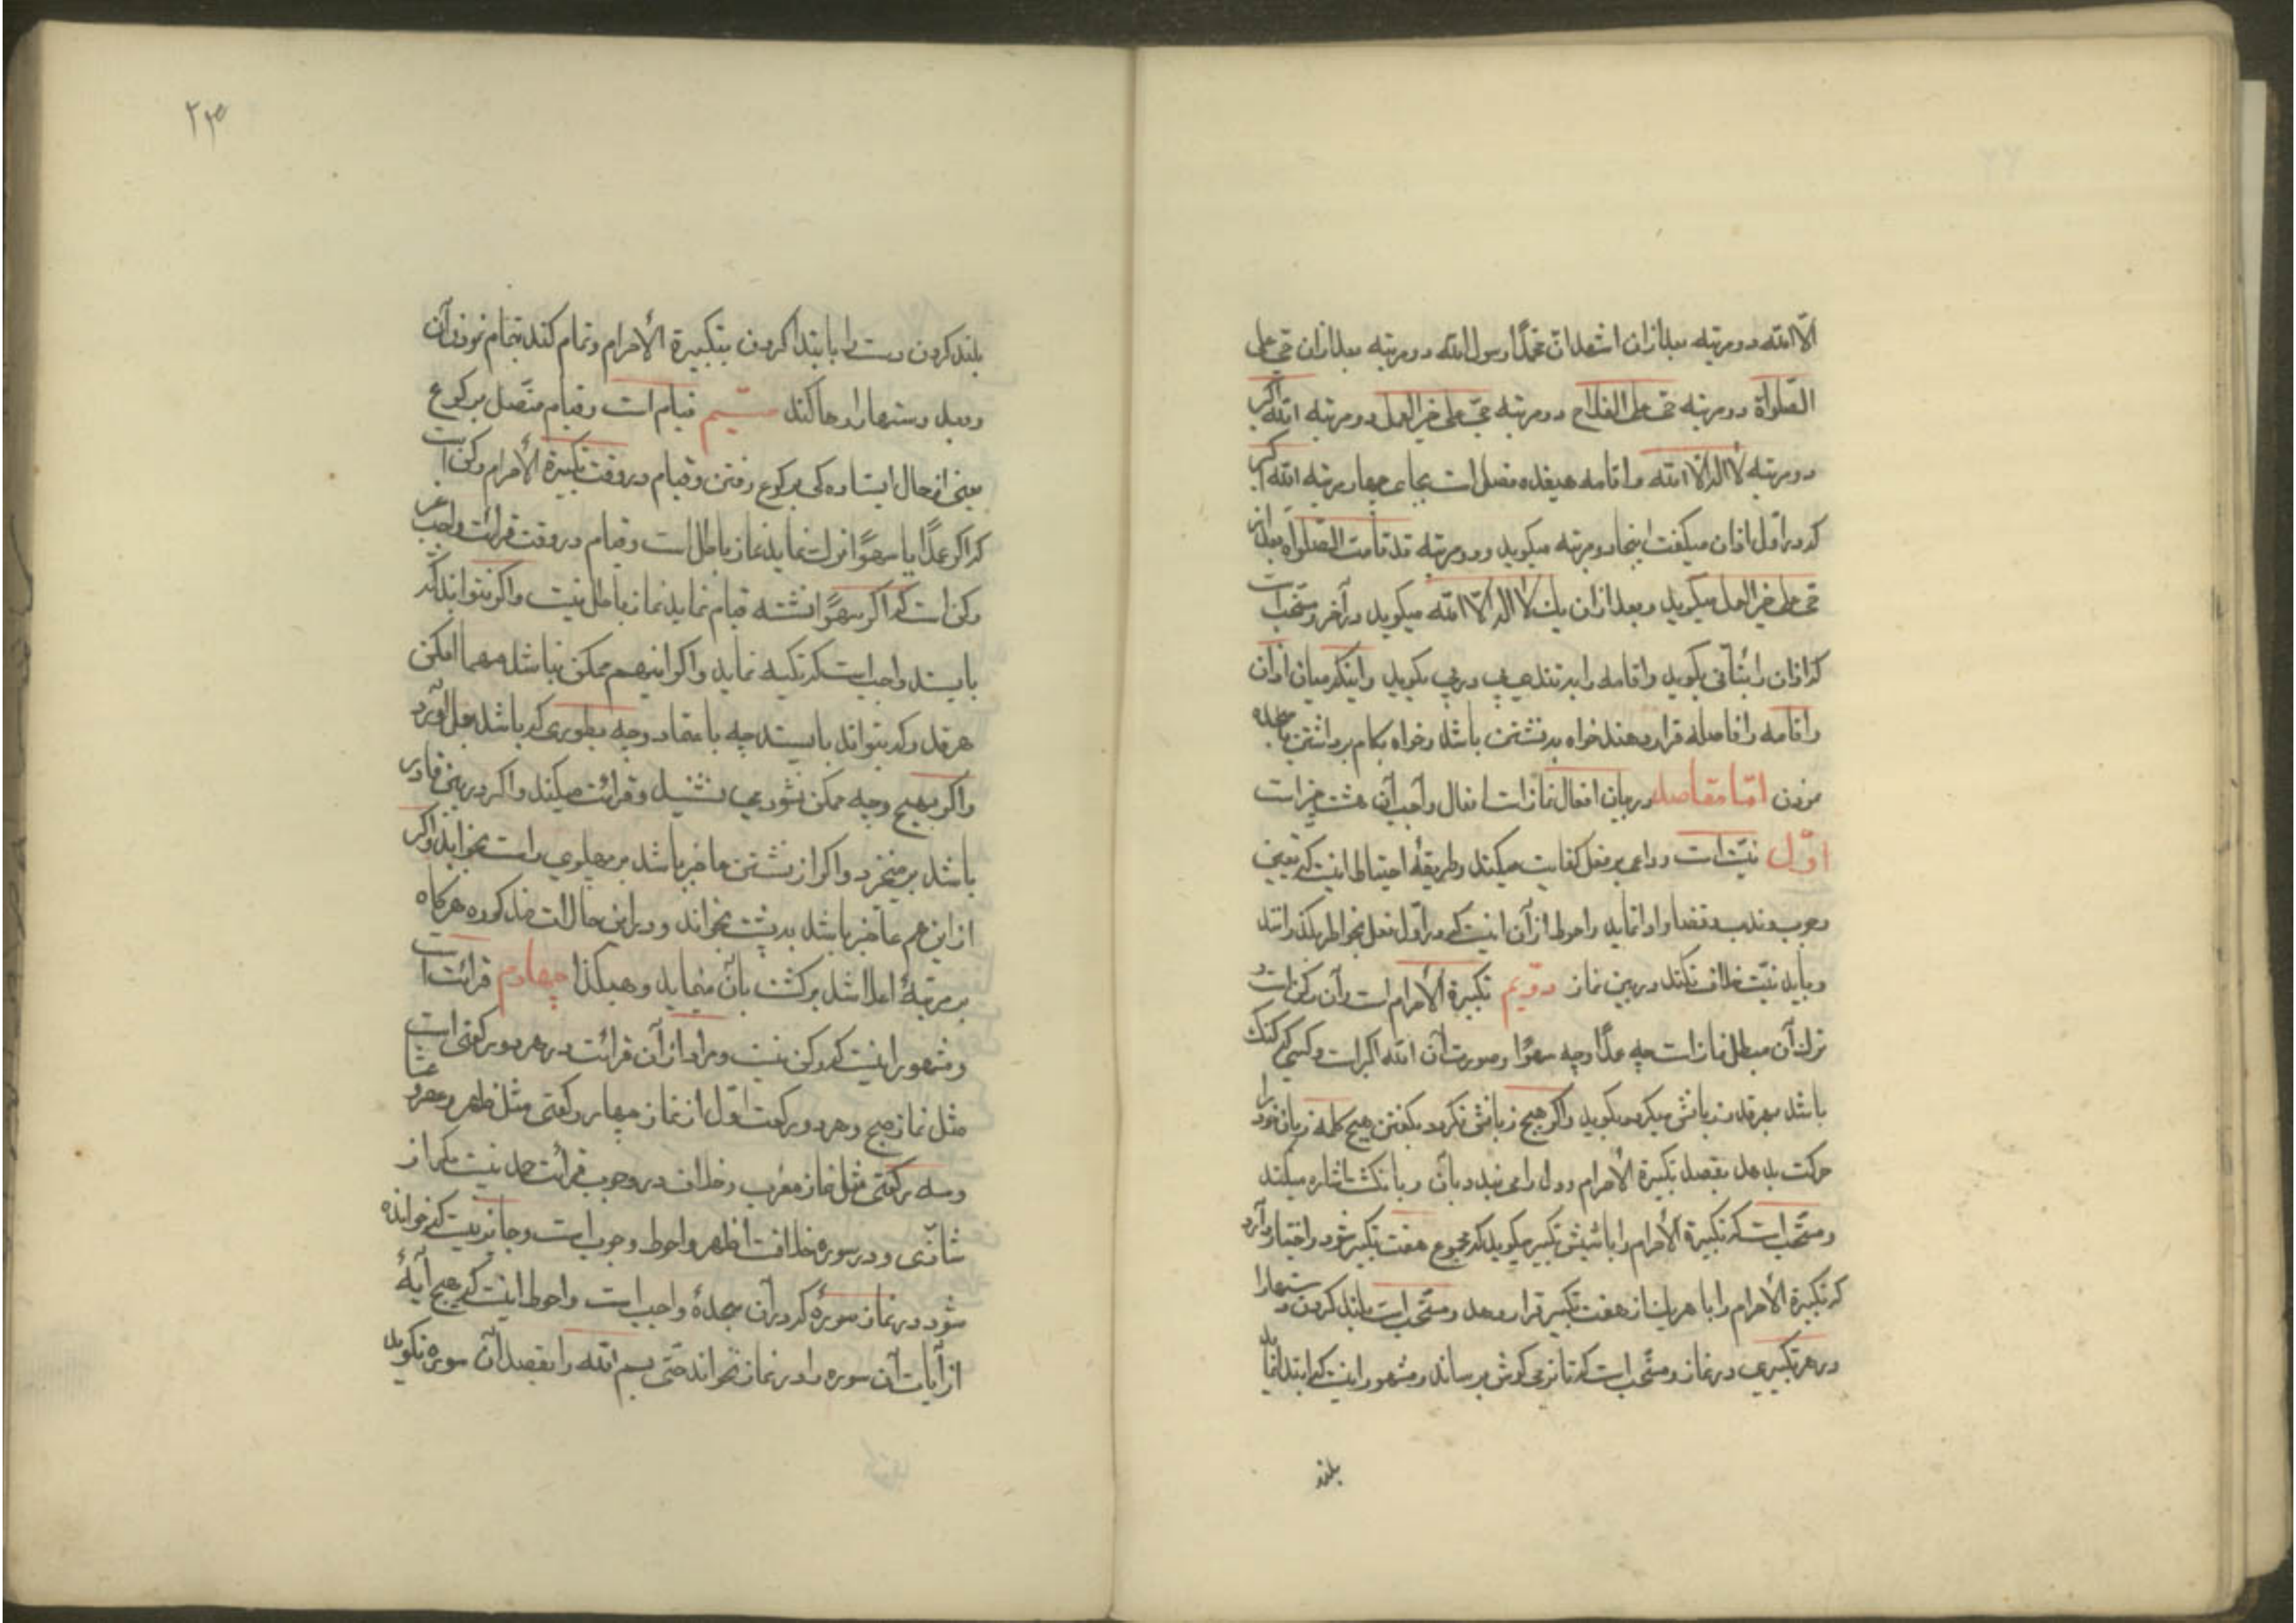 الّا الله دو مرتبه بعد از ان اشهد انّ محمّدًا رسول الله دو مرتبه بعد از ان حیّ علی
الصّلواة دو مرتبه حیّ علی الفلاح دو مرتبه حیّ علی خیر العمل دو مرتبه الله اکبر
دو مرتبه لا اله الّا الله و اقامه هیفده فصل است بجای چهار مرتبه الله اکبر
که در اوّل اذان میگفت اینجا دو مرتبه میکوید و دو مرتبه قد قامت الصّلواة بعد از
حیّ علی خیر العمل میکوید و بعد از ان یک لا اله الّا الله میکوید در آخر و مستحبّ است
که اذان را بتأنّی بکوید و اقامه را بتندی پی در پی بکوید و اینکه میان اذان
و اقامه را فاصله قرار دهند خواه بنشستن باشد و خواه بکام برداشتن یا سجده
نمودن امّا مقاصد در بیان افعال نماز است افعال واجب آن هشت چیز است
اوّل نیّت است و داعی بر فعل کفایت میکند و طریقهٔ احتیاط اینست که تعیین
وجوب و ندب و قضا و ادا نماید و احوط از آن اینست که در اوّل فعل بخواطر بکذراند
و باید نیّت خلاف نکند در بین نماز دوّیم تکبیرة الأحرام است و آن رکن است و
ترک آن مبطل نماز است چه عمدًا و چه سهوًا و صورت آن الله اکبر است و کسی که کنک
باشد بهر قدر زبانش میکردد بکوید و اکر هیچ زبانش نکردد بکفتن هیچ کلمه زبان خود را
حرکت بدهد بقصد تکبیرة الأحرام و دل را می بندد بآن و با انکشت اشاره میکند
و مستحبّ است که تکبیرة الأحرام را با شیش تکبیر میکوید که مجموع هفت تکبیر شود و اختیار دارد
که تکبیرة الأحرام را با هر یک از هفت تکبیر قرار دهد و مستحبّ است بلند کردن دستها را
در هر تکبیری در نماز و مستحبّ است که تا نرمی کوش برساند و مشهور اینست که ابتدا نماید
بلند
۲۳
بلند کردن دست را بابتدا کردن بتکبیرة الأحرام و تمام کند بتمام نمودن آن
و بعد دستها را رها کند سیّیم قیام است و قیام متّصل برکوع
یعنی از حال ایستاده کی برکوع رفتن و قیام در وقت تکبیرة الأحرام رکن است
که اکر عمدًا یا سهوًا ترک نماید نماز باطل است و قیام در وقت قرائت واجب غیر
رکن است که اکر سهوًا نشسته قیام نماید نماز باطل نیست و اکر نتواند که
بایستد واجب است که تکیه نماید و اکر اینهم ممکن نباشد مهما امکن
هر قدر که بتواند بایستد چه باعتماد و چه بطوری که باشد بعمل آورد
و اکر بهیچ وجه ممکن نشود می نشیند و قرائت میکند و اکر در بین قادر
باشد بر میخیزد و اکر از نشستن عاجز باشد بر پهلوی راست بخوابد و اکر
از این هم عاجز باشد بر پشت بخوابد و در این حالات مذکوره هرکاه
بر مرتبهٔ اعلا شد برکشت بآن مینماید و هیکذا چهارم قرائت است
و مشهور اینست که رکن نیست و مراد از آن قرائت در هر دو رکعتی است
مثل نماز صبح و هر دو رکعت اوّل از نماز چهار رکعتی مثل ظهر و عصر و عشا
و سه رکعتی مثل نماز مغرب و خلاف در وجوب قرائت حمد نیست مکر از
شاذّی و در سوره خلافست اظهر و احوط وجوب است و جایز نیست که خوانده
شود در نماز سورهٔ که در آن سجدهٔ واجب است و احوط اینست که هیچ آیهٔ
از آیات آن سوره را در نماز نخواند حتّی بسم الله را بقصد آن سوره نکوید